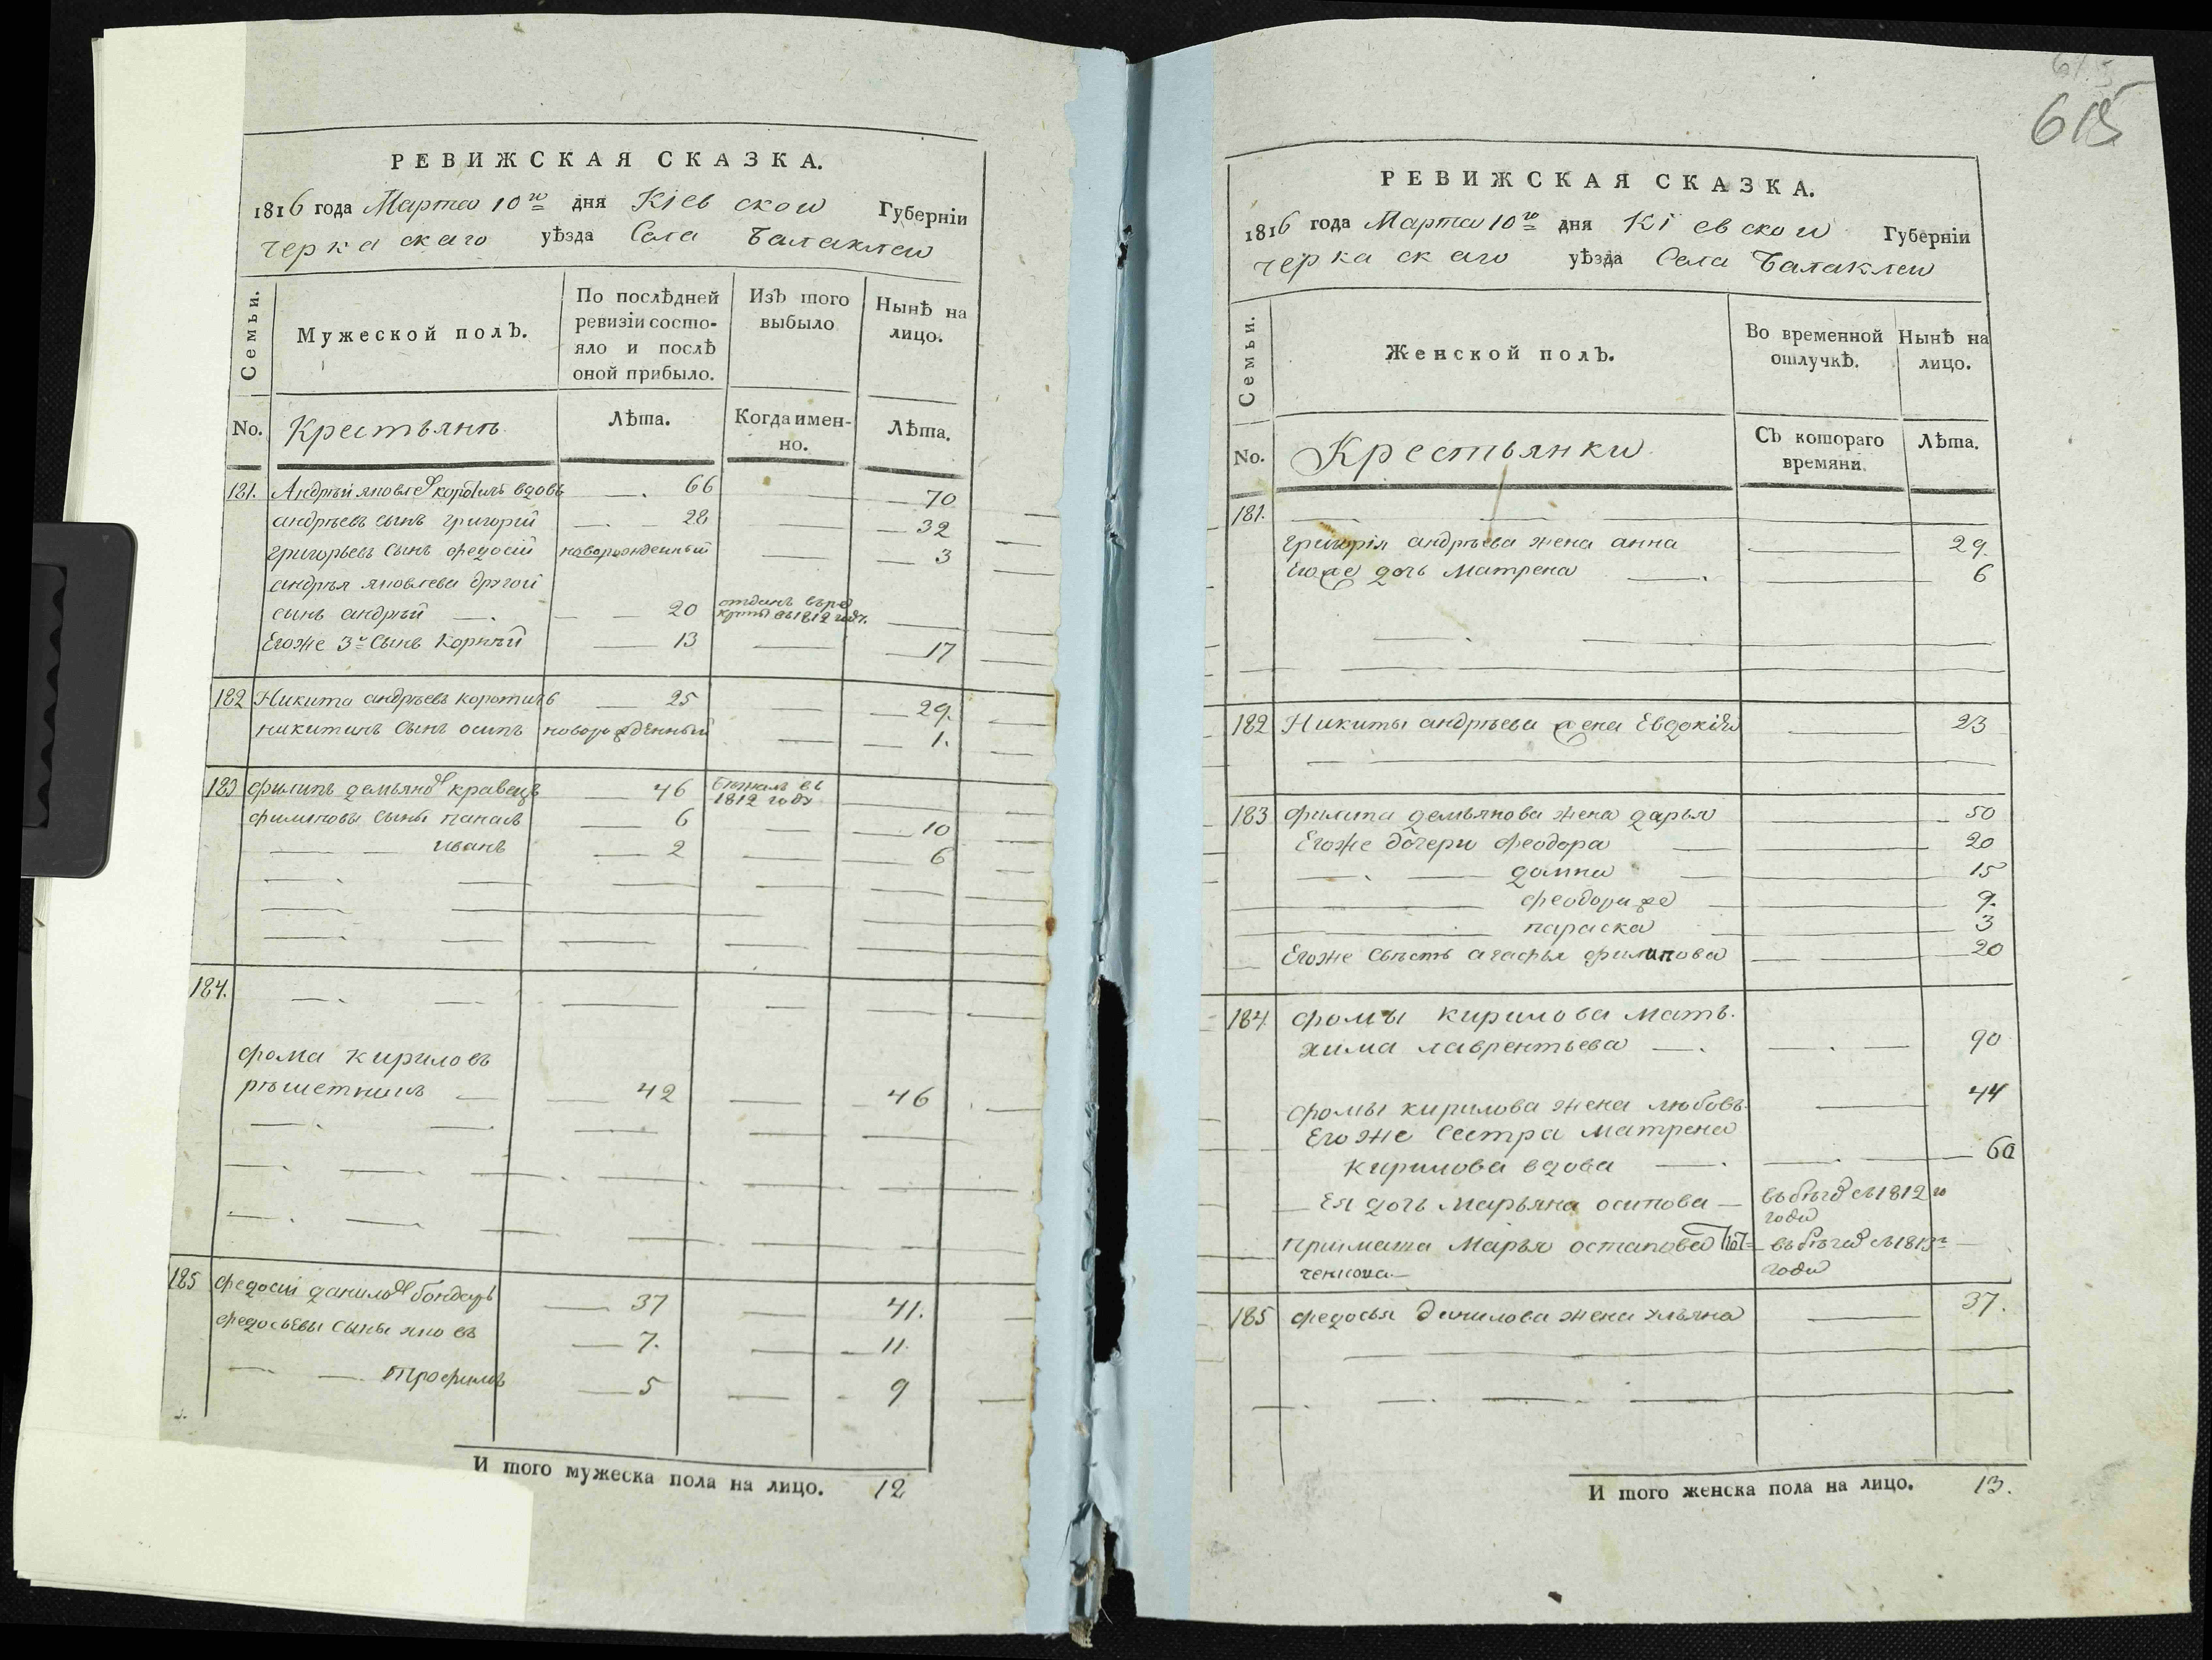 РЕВИЖСКАЯ СКАЗКА.
1816 года Марта 10го дня Кіевской Губерніи
Черкаскаго уѣзда Села Балаклеи
Семьи.
Мужеской полЪ.
По послѣдней ревизіи состо-
яло и послѣ
оной прибыло.
ИзЪ того
выбыло
НынѣЪ на
лицо.
No.
Крестьянъ
Лѣта.
Когда имен-
но.
Лѣта.
181. Андрѣй яковлевъ вдовъ 66 70
андрѣевъ сынъ григорій 28 32
григорьевъ сынъ федосій новорожденный 3
андрѣя яковлева другой
сынъ андрѣй 20 отданъ въ ре
круты въ 1812 году.
Егоже 3й сынъ Корнѣй 13 17
182 Никита андрѣевъ коротичъ 25 29.
никитинъ сынъ осипъ новорожденный 1.
183 филипъ демьяновъ кравецъ 46 бѣжалъ въ
1812 году
филиповы сыны панасъ 6 10
иванъ 2 6
184.
фома кириловъ
рѣшетникъ 42 46
185 федосій даниловъ бондарь 37 41.
федосьевы сыны яковъ 7. 11.
трофимъ 5 9
И того мужеска пола на лицо. 12
615
615
РЕВИЖСКАЯ СКАЗКА.
1816 года Марта 10го дня Кіевской Губерніи
Черкаскаго уѣзда Села Балаклеи
Семьи.
Женской полЪ.
Во временной
отлучкѣ.
Нынѣ на
лицо.
No.
Крестьянки
СЪ котораго
времяни.
Лѣта.
181.
григорія андрѣева жена анна 29.
Егоже дочь Матрена 6
182 Никиты андрѣева жена Евдокія 23
183 филипа демьянова жена дарья 50
Егоже дочери феодора 20
домна 15
феодора же 9.
параска 3
Егоже свѣсть агафья филипова 20
184 фомы кирилова мать
хима лаврентьева 90
фомы кирилова жена любовь 44
Егоже сестра матрена
кирилова вдова 60
Ея дочь марьяна осипова въ бѣгахъ съ 1812го
года
Примата Марья остапова въ бѣгахъ съ 1813го
года
185 федосья данилова жена ульяна 37.
И того женска пола на лицо. 13.